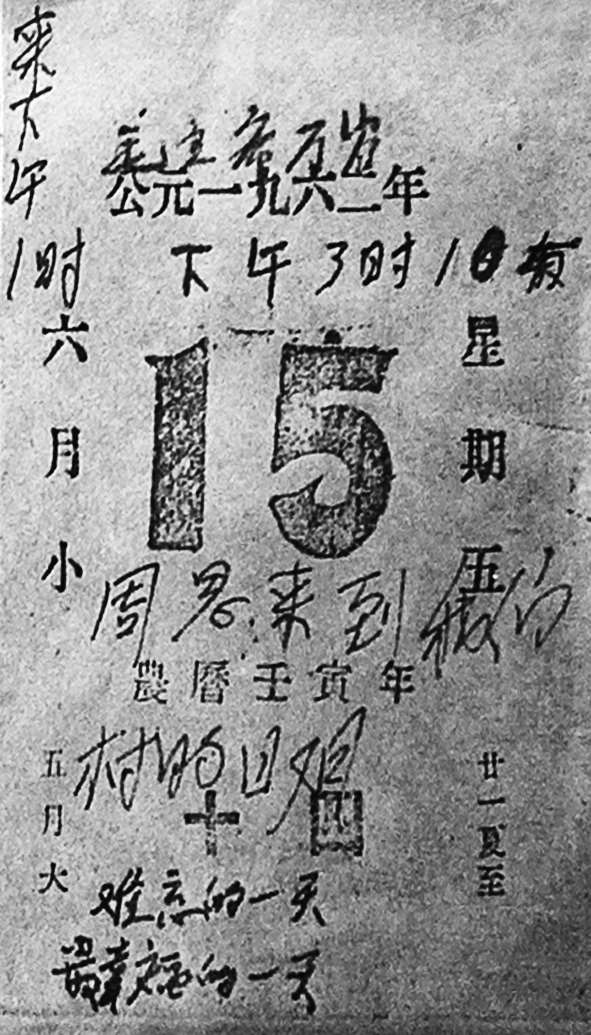 来下午
1时
公元一九六二年
下午3时10
六月小
15
星期五
周恩来到我们
農曆壬寅年
村的日期
五月大
十四
廿一夏至
难忘的一天
最幸福的一天